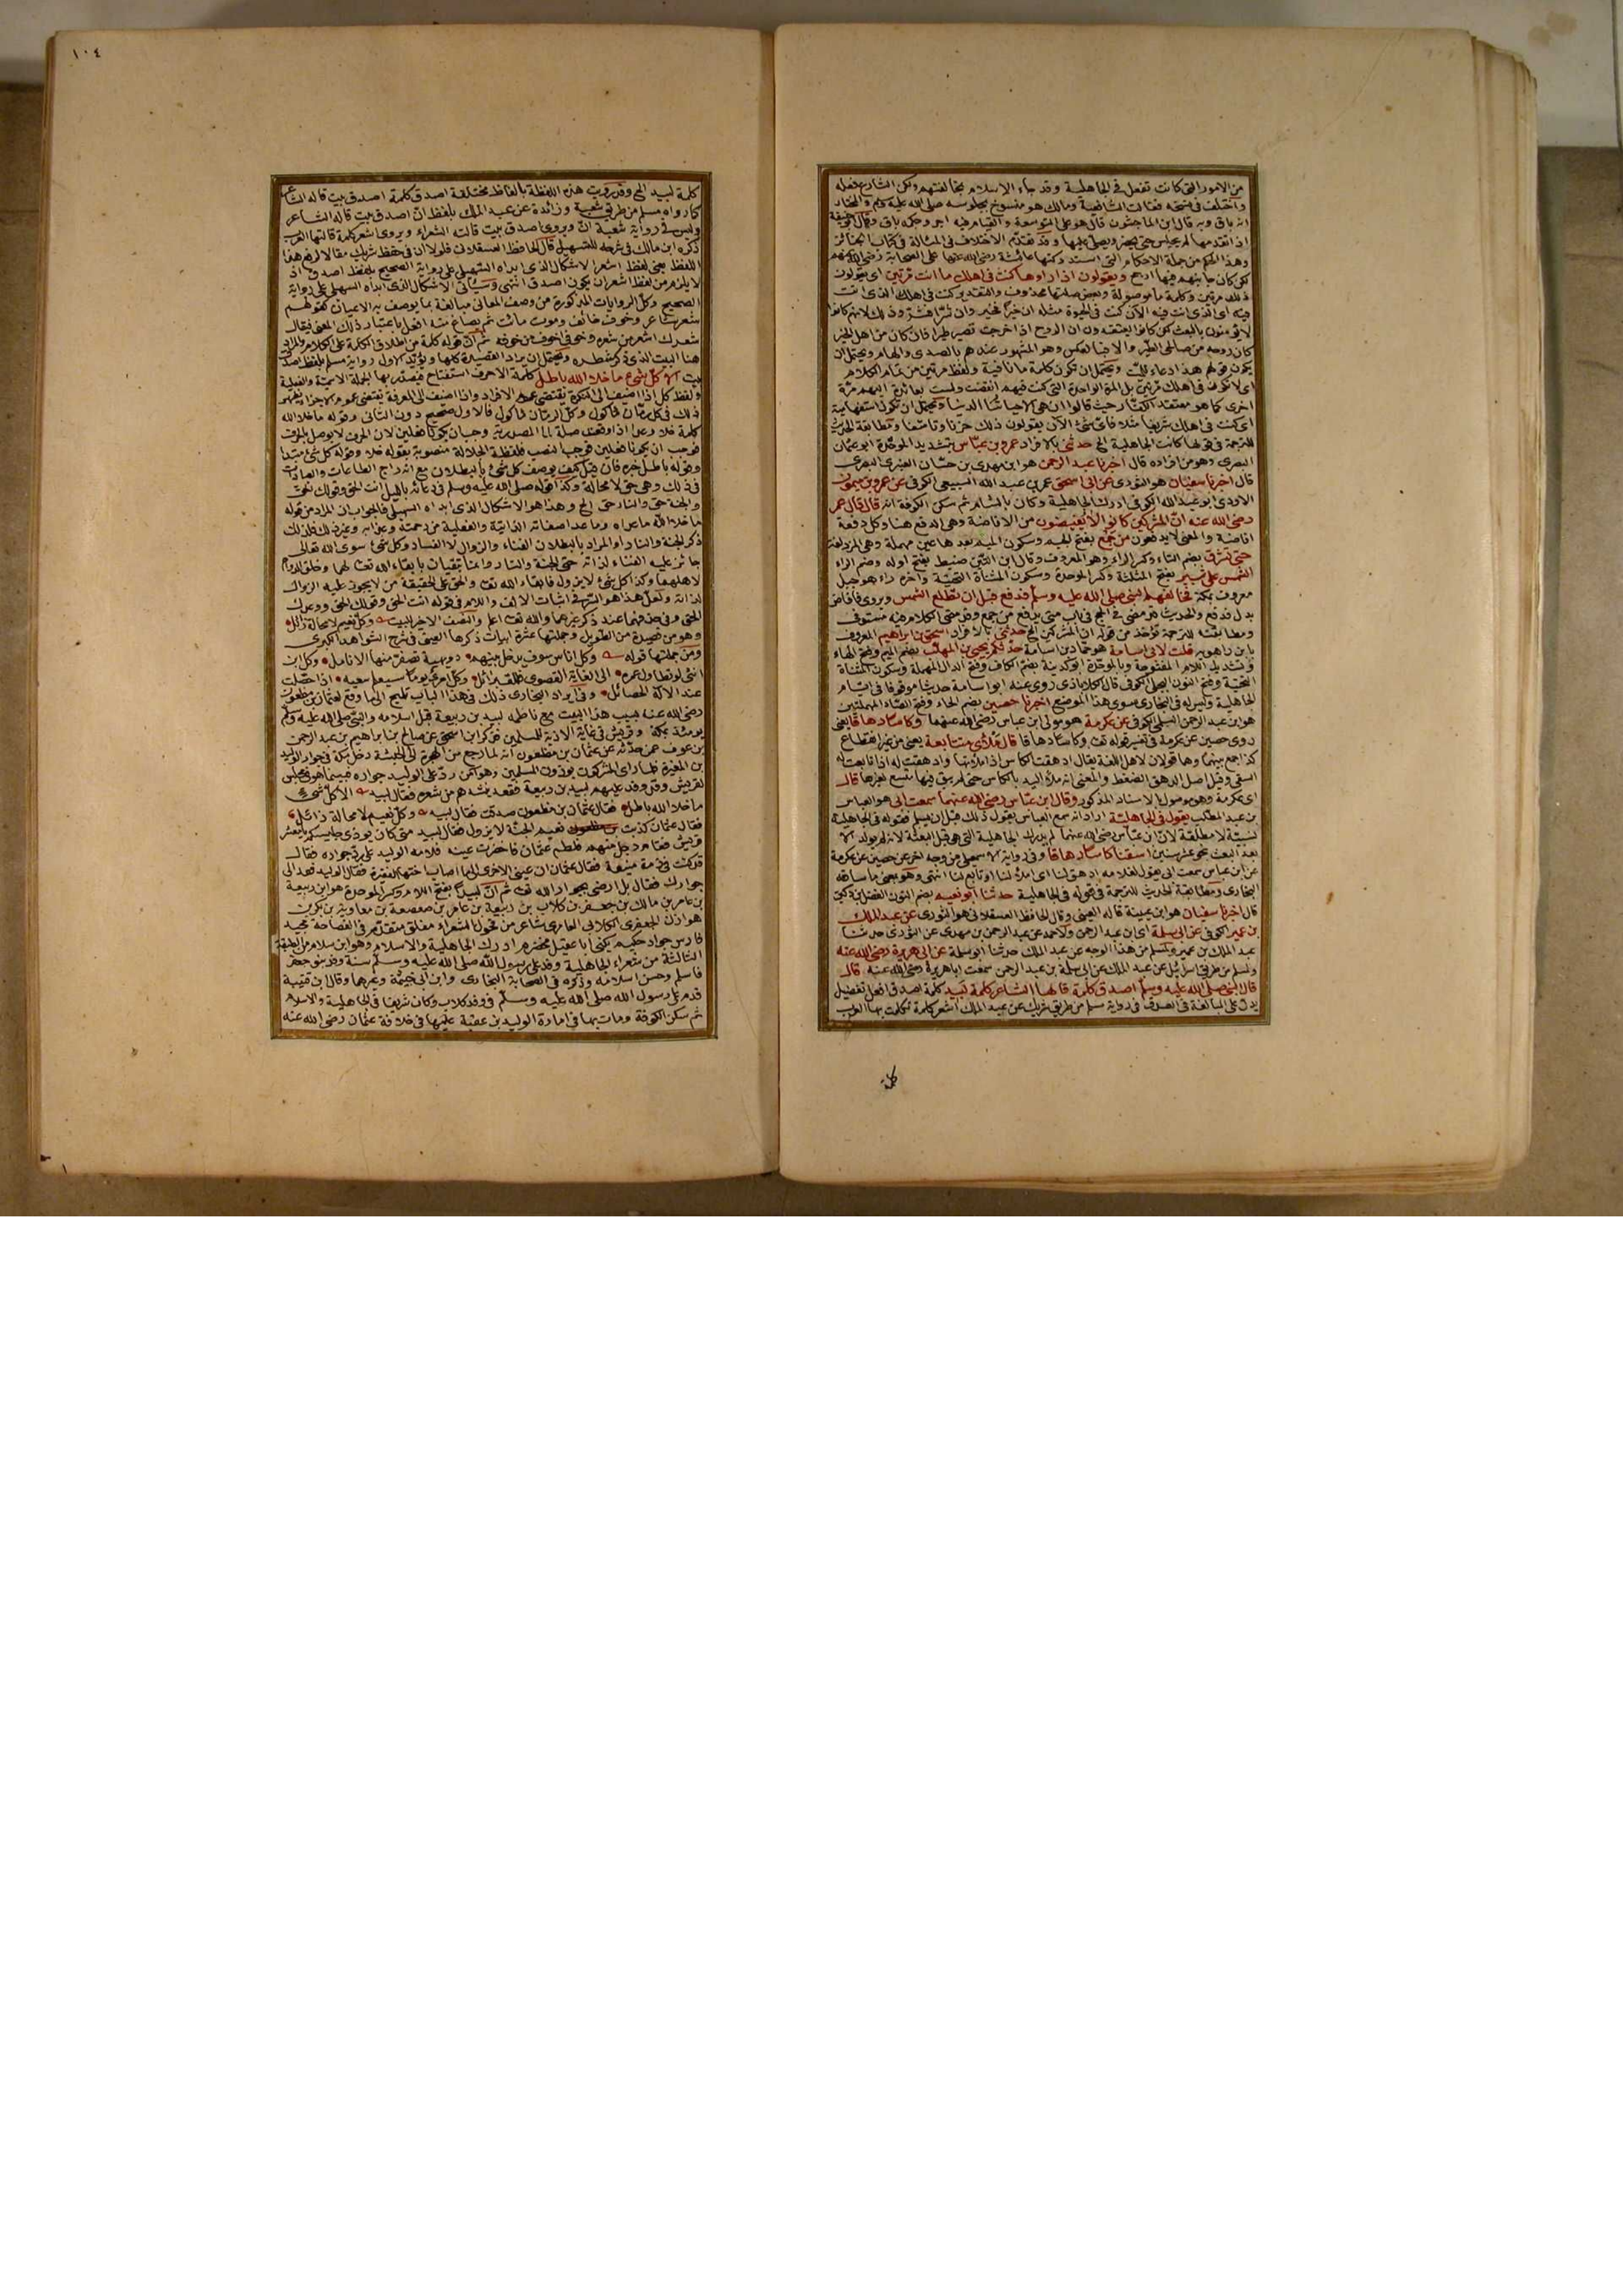 من الامور التى كانت تفعل فى الجاهلية وقد جاء الاسلام بمخالفتهم ولكن الشارع فعله
واختلف فى نسخه فقالت الشافعية ومالك هو منسوخ بجلوسه صلى الله عليه وسلم والمختار
انه باق وبه قال ابن الماجشون قال هو على التوسعة والقيام فيه اجر وحكمه باق
اذا تقدمها لم يجلس حتى ويصلى عليها وقد تقدّم الاختلاف فى المسألة فى كتاب الجنائز
وهذا الحكم من جملة الاحكام التى استدركتها عائشة رضى الله عنها على الصحابة رضى الله عنهم
لكن كان جانبهم فيها ارجح ويقولون اذا راوها كنت فى اهلك ما انت مرّتين اى يقولون
ذلك مرتين وكلمة ما موصولة وبعض صلتها محذوف والتقدير كنت فى اهلك الذى انت
فيه اى الذى انت فيه الآن كنت فى الحيوة مثله ان خيرًا فخير وان شرًا فشر وذلك لانهم كانوا
لا يؤمنون بالبعث لكن كانوا يعتقدون ان الروح اذا خرجت تصير طيرا فان كان من اهل الخير
كان روحه من صالحى الطير والا فبالعكس وهو المشهور عندهم بالصدى والهام ويحتمل ان
يكون قولهم هذا دعاء للميت ويحتمل ان تكون كلمة ما نافية ولفظ مرتين من تمام الكلام
اى لا تكون فى اهلك مرّتين بل المرّة الواحدة التى كنت فيهم انقضت ولست بعائد اليهم مرّة
اخرى كما هو معتقد الكفّار حيث قالوا ان هى الا حياتنا الدنيا ويحتمل ان تكون استفهامية
اى كنت فى اهلك شريفا مثلا فاىّ شئ انت الآن يقولون ذلك حزنا وتاسّفا ومطابقة الحديث
للترجمة فى قولها كانت الجاهلية الخ حدثنى بالافراد عمرو بن عبّاس بتشديد الموحّدة ابو عثمان
البصرى وهو من افراده قال اخبرنا عبد الرحمن هو ابن مهدى بن حسّان العنبرى البصرى
قال اخبرنا سفيان هو الثورى عن ابى اسحق عمرو بن عبد الله السبيعى الكوفى عن عمرو بن ميمون
الاودى ابو عبد الله الكوفى ادرك الجاهلية وكان بالشام ثم سكن الكوفة انه قال قال عمر
رضى الله عنه انّ المشركين كانوا لا يفيضون من الافاضة وهى الدفع هنا وكل دفعة
افاضة والمعنى لا يدفعون من جَمْع بفتح الجيم وسكون الميم بعدها عين مهملة وهى المزدلفة
حتى تشرق بضم التاء وكسر الراء وهو المعروف وقال ابن التّين ضبط بفتح اوله وضم الراء
الشمس على ثبير بفتح المثلثة وكسر الموحدة وسكون المثناة التحتية واخره راء هو جبل
معروف بمكة فخالفهم النبى صلى الله عليه وسلم فدفع قبل ان تطلع الشمس ويروى فافاض
بدل فدفع والحديث قد مضى فى الحج فى باب متى يدفع من جمع وقد مضى الكلام فيه مستوفى
ومطابقته للترجمة تؤخذ من قوله ان المشركين الخ حدثنى بالافراد اسحق بن ابراهيم المعروف
بابن راهويه قلت لابى اسامة هو حمّاد بن اسامة حدّثكم يحيى بن المهلّب بضم الميم وفتح الهاء
وتشديد اللام المفتوحة وبالموحّدة ابو كدينة بضم الكاف وفتح الدال المهملة وسكون المثنّاة
التحتية وفتح النون البجلى الكوفى قال الكلاباذى روى عنه ابو اسامة حديثا موقوفا فى ايام
الجاهلية وليس له فى البخارى سوى هذا الموضع اخبرنا حصين بضم الحاء وفتح الصاد المهملتين
هو ابن عبد الرحمن السلمى الكوفى عن عكرمة هو مولى ابن عباس رضى الله عنهما وكاسًا دهاقًا يعنى
روى حصين عن عكرمة فى تفسير قوله تعالى وكاسًا دهاقا قال ملأى متتابعة يعنى من غير انقطاع
كذا جمع بينهما وهما قولان لاهل اللغة يقال ادهقت الكاس اذا ملأتها وادهقت له اذا تابعت له
السقى وقيل اصل الدهق الضغط والمعنى انه ملأ اليد بالكاس حتى لم يبق فيها متّسع لغيرها قال
اى عكرمة وهو موصول بالاسناد المذكور وقال ابن عبّاس رضى الله عنهما سمعت ابى هو العباس
بن عبد المطلب يقول فى الجاهلية اراد انه سمع العباس يقول ذلك قبل ان يسلم فقوله فى الجاهلية
نسبيّة لا مطلقة لانّ ابن عبّاس رضى الله عنهما لم يدرك الجاهلية التى هى قبل البعثة لانه لم يولد الا
بعد البعث بنحو عشر سنين اسقنا كاسًا دهاقًا وفى رواية الاسمعيلى من وجه اخر عن حصين عن عكرمة
عن ابن عباس سمعت ابى يقول لغلامه ادهق لنا اى املأ لنا او تابع لنا انتهى وهو بمعنى ما ساقه
البخارى ومطابقة الحديث للترجمة فى قوله فى الجاهلية حدثنا ابو نعيم بضم النون الفضل بن دكين
قال اخبرنا سفيان هو ابن عيينة قاله العينى وقال الحافظ العسقلانى هو الثورى عن عبد الملك
بن عمير الكوفى عن ابى سلمة اى ابن عبد الرحمن ولاحمد عن عبد الرحمن بن مهدى عن الثورى حدثنا
عبد الملك بن عمير ولمسلم من هذا الوجه عن عبد الملك حدثنا ابو سلمة عن ابى هريرة رضى الله عنه
ولمسلم من طريق اسرائيل عن عبد الملك عن ابى سلمة بن عبد الرحمن سمعت ابا هريرة رضى الله عنه قال
قال النبى صلى الله عليه وسلم اصدق كلمة قالها الشاعر كلمة لبيد كلمة اصدق افعل تفضيل
يدل على المبالغة فى الصدق فى رواية مسلم من طريق شريك عن عبد الملك اشعر كلمة تكلمت بها العرب
١٠٤
كلمة لبيد الخ وقد رويت هذه اللفظة بالفاظ مختلفة اصدق كلمة اصدق بيت قاله الشاعر
كما رواه مسلم من طريق شعبة وزائدة عن عبد الملك بلفظ انّ اصدق بيت قاله الشاعر
وليس فى رواية شعبة انّ ويروى اصدق بيت قالته الشعراء ويروى اشعر كلمة قالتها العرب
ذكره ابن مالك فى شرحه للتسهيل قال الحافظ العسقلانى فلولا ان فى حفظ شريك مقالا لرفع هذا
اللفظ يعنى لفظ اشعر الاشكال الذى ابداه السهيلى على رواية الصحيح بلفظ اصدق اذ
لا يلزم من لفظ اشعر ان يكون اصدق انتهى وسيأتى الاشكال الذى ابداه السهيلى على رواية
الصحيح وكل الروايات المذكورة من وصف المعانى مبالغة بما يوصف به الاعيان كقولهم
شعر شاعر وخوف خائف وموت مائت ثم يصاغ منه افعل باعتبار ذلك المعنى فيقال
شعرك اشعر من شعره وخوفى اخوف من خوفه ثم انّ قوله كلمة من اطلاق الكلمة على الكلام والمراد
هنا البيت الذى ذكر شطره ويحتمل ان يراد القصيدة كلها ويؤيّد الاول رواية مسلم بلفظ اصدق
بيت الا كلّ شئ ما خلا الله باطل كلمة الا حرف استفتاح فيصدّر بها الجملة الاسميّة والفعلية
ولفظ كل اذا اضيف الى النكرة يقتضى عموم الافراد واذا اضيف الى المعرفة يقتضى عموم الاجزاء يظهر
ذلك فى كل رمّان مأكول وكلّ الرمّان مأكول فالاول صحيح دون الثانى وقوله ما خلا الله
كلمة خلا وعدا اذا وقعتا صلة لما المصدرية وجب ان يكونا فعلين لان الحرف لا يوصل بالحرف
فوجب ان يكونا فعلين فوجب النصب فلفظة الجلالة منصوبة بقوله خلا وقوله كل شئ مبتدا
وقوله باطل خبره فان قيل كيف يوصف كل شئ بالبطلان مع اندراج الطاعات والعبادات
فى ذلك وهى حق لا محالة وكذا قوله صلى الله عليه وسلم فى دعائه بالليل انت الحق وقولك الحق
والجنة حق والنار حق الخ وهذا هو الاشكال الذى ابداه السهيلى فالجواب ان المراد من قوله
ما خلا الله ما عداه وما عدا صفاته الذاتية والفعلية من رحمته وعذابه وغير ذلك فلذلك
ذكر الجنة والنار او المراد بالبطلان الفناء والزوال لا الفساد وكل شئ سوى الله تعالى
جائز عليه الفناء لذاته حتى الجنة والنار وانما تبقيان بابقاء الله تعالى لهما وخلق الدوام
لاهلهما وكذا كل شئ لا يزول فابقاء الله تعالى والحق على الحقيقة من لا يجوز عليه الزوال
لذاته ولعلّ هذا هو السّر فى اثبات الالف واللام فى قوله انت الحق وقولك الحق ووعدك
الحق وفى حذفهما عند ذكر غيرهما والله تعالى اعلم والنصف الاخير للبيت وكلّ نعيم لا محالة زائل
وهو من قصيدة من الطويل وجملتها عشرة ابيات ذكرها العينى فى شرح الشواهد الكبرى
ومن جملتها قوله وكل اناس سوف يدخل بينهم دويهية تصفرّ منها الانامل وكل ابن
انثى لو تطاول عمره الى الغاية القصوى فللقبر آئل وكلّ امرئ يومًا سيعلم سعيه اذا حصّلت
عند الاله الحصائل وفى ايراد البخارى ذلك فى هذا الباب تلميح الى ما وقع لعثمان بن مظعون
رضى الله عنه بسبب هذا البيت مع ناظمه لبيد بن ربيعة قبل اسلامه والنبى صلى الله عليه وسلم
يومئذ بمكة وقريش فى غاية الاذية للمسلمين فذكر ابن اسحق عن صالح بن ابراهيم بن عبد الرحمن
بن عوف عمن حدّثه عن عثمان بن مظعون انه لما رجع من الهجرة الى الحبشة دخل مكة فى جوار الوليد
بن المغيرة فلما راى المشركون يوذون المسلمين وهو آمن ردّ على الوليد جواره فبينما هو فى مجلس
لقريش وقد وفد عليهم لبيد بن ربيعة فقعد ينشدهم من شعره فقال لبيد الا كلّ شئ
ما خلا الله باطل فقال عثمان بن مظعون صدقت فقال لبيد وكلّ نعيم لا محالة زائل
فقال عثمان كذبت نعيم الجنّة لا يزول فقال لبيد متى كان يوذى جليسكم يا معشر
قريش فقام رجل منهم فلطم عثمان فاخضرت عينه فلامه الوليد على ردّ جواره فقال
قد كنت فى ذمة منيعة فقال عثمان ان عينى الاخرى الى ما اصاب اختها لفقيرة فقال الوليد فعد الى
جوارك فقال بل ارضى بجوار الله تعالى ثم انّ لبيدًا بفتح اللام وكسر الموحدة هو ابن ربيعة
بن عامر بن مالك بن جعفر بن كلاب بن ربيعة بن عامر بن صعصعة بن معاوية بن بكر بن
هوازن الجعفرى الكلابى العامرى شاعر من فحول الشعراء مفلق متقدّم فى الفصاحة مجيد
فارس جواد حكيم يكنى ابا عقيل مخضرم ادرك الجاهلية والاسلام وهو ابن سلام من الطبقة
الثالثة من شعراء الجاهلية وفد على رسول الله صلى الله عليه وسلم سنة وفد بنو جعفر
فاسلم وحسن اسلامه وذكره فى الصحابة البخارى وابن ابى خيثمة وغيرهما وقال ابن قتيبة
قدم على رسول الله صلى الله عليه وسلم فى وفد كلاب وكان شريفا فى الجاهلية والاسلام
ثم سكن الكوفة ومات بها فى امارة الوليد بن عقبة عليها فى خلافة عثمان رضى الله عنه